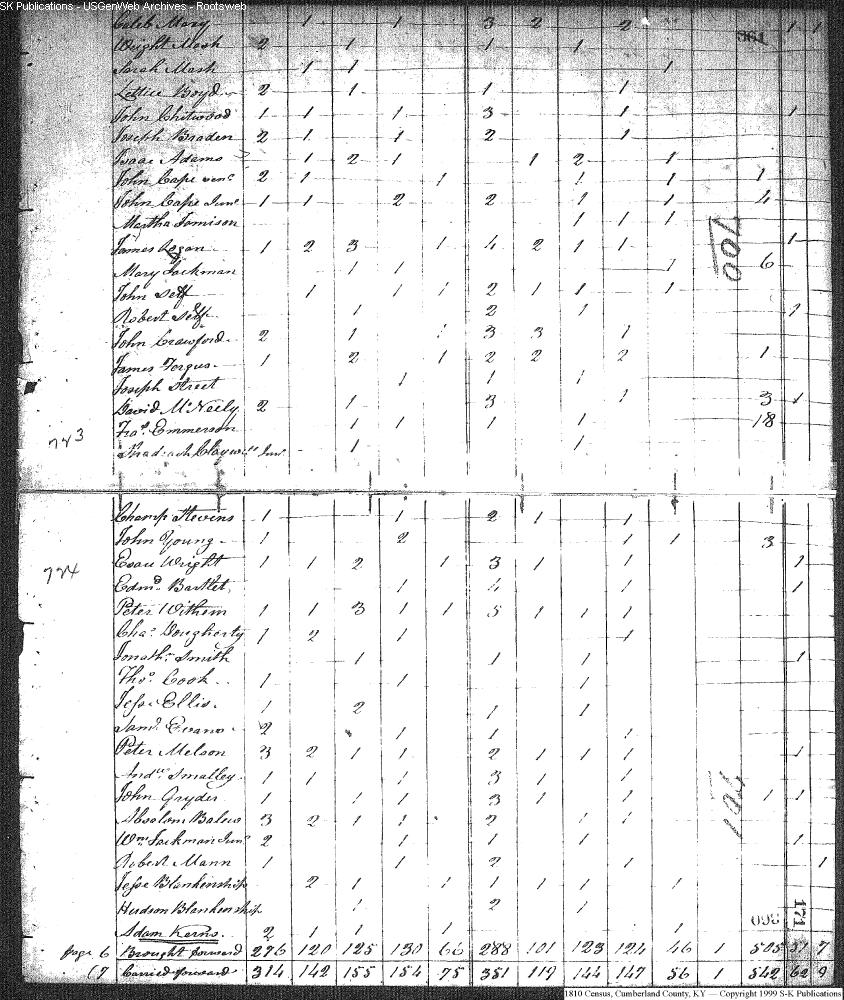 SK Publications - USGenWeb Archives - Rootsweb
Caleb Mary 1 1 3 2 2 1 1
361
Wright Mash 2 1 1 1
Sarah Mash 1 1 1
Lettice Boyd 2 1 1 1
John Chitwood 1 1 1 3 1 1
Joseph Braden 2 1 1 2 1
Isaac Adams 1 2 1 1 2 1
John Cape senr 2 1 1 1 1 1
John Cape Junr 1 1 2 2 1 1 4
Martha Jamison 1 1 1
700
James 1 2 3 1 4 2 1 1 1
Mary Jackman 1 1 1 6
John Self 1 1 1 2 1 1 1
Robert Self 1 2 1 1
John Crawford 2 1 1 3 3 1
James Forgus 1 2 1 2 2 2 1
Joseph Street 1 1 1
David McNeely 2 1 3 1 3 1
743
Fras Emmerson 1 1 1 1 18
1 1
Champ Stevens 1 1 2 1 1
John Young 1 2 1 1 3
Esau Wright 1 1 2 1 3 1 1 1
774
Edmd Bartlet 1 4 1 1
Peter Withem 1 1 3 1 1 5 1 1 1
Chas Dougherty 1 2 1 1
Jonathn Smith 1 1 1 1
Thos Cook 1 1 1
Jesse Ellis 1 2 1 1
Saml Evans 2 1 1 1
Peter Melson 3 2 1 1 2 1 1 1 1
Andw Smalley 1 1 1 3 1 1
701
John Gryder 1 1 1 3 1 1 1 1
Absolom Balew 3 2 1 1 2 1 1
Wm Jackman Junr 2 1 1 1 1
Robert Mann 1 1 2 1 1
Jesse Blankenship 2 1 1 1 1 1 1
Hudson Blankenship 1 2 1
171
360
Adam Kerns 2 1 1 1 1
page 6 Brought forward 296 120 125 130 66 288 101 123 124 46 1 505 51 7
(7 Carried forward 314 142 155 154 75 351 119 144 147 56 1 542 62 9
1810 Census, Cumberland County, KY — Copyright 1999 S-K Publications